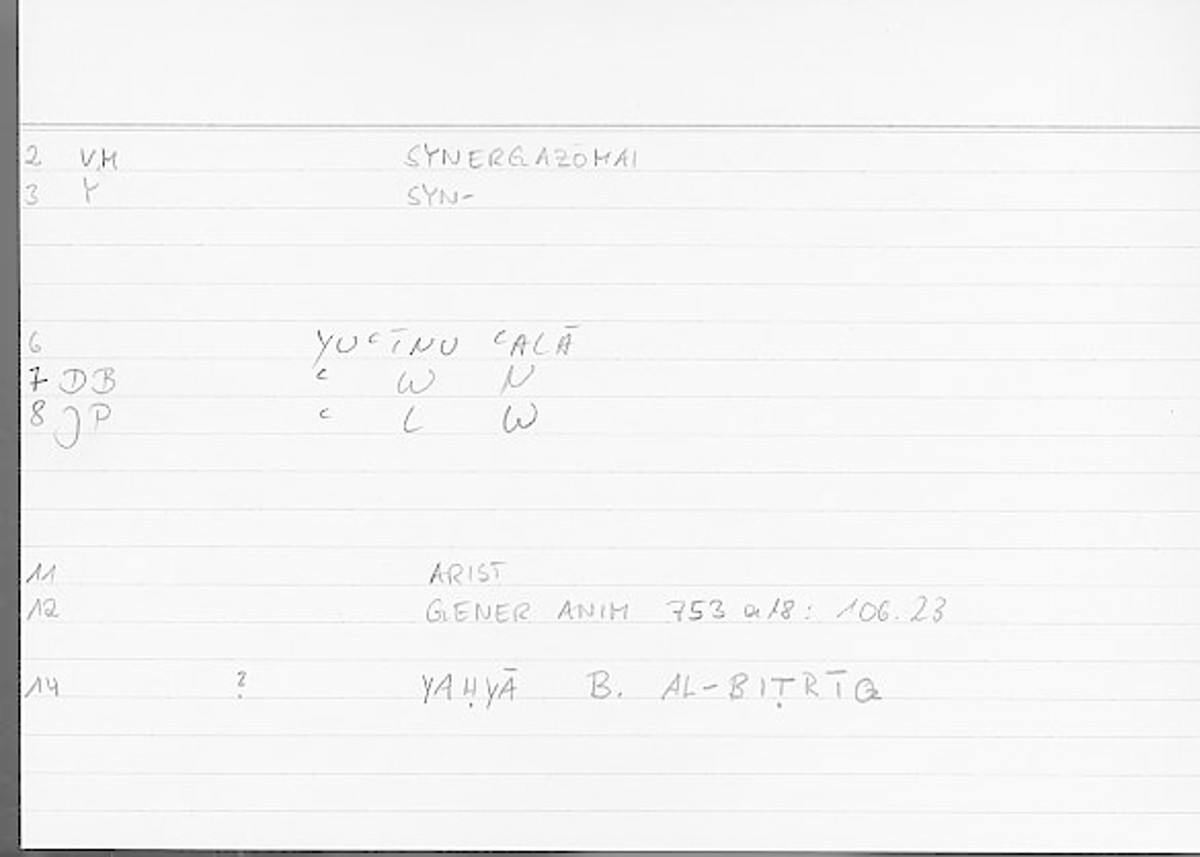 2 VM SYNERGAZOMAI
3 Y SYN-
6 YUʿĪNU ʿALĀ
7 DB ʿ W N
8 JP ʿ L W
11 ARIST
12 GENER ANIM 753 a 18 : 106.23
14 ? YAḤYĀ B. AL-BIṬRĪQ